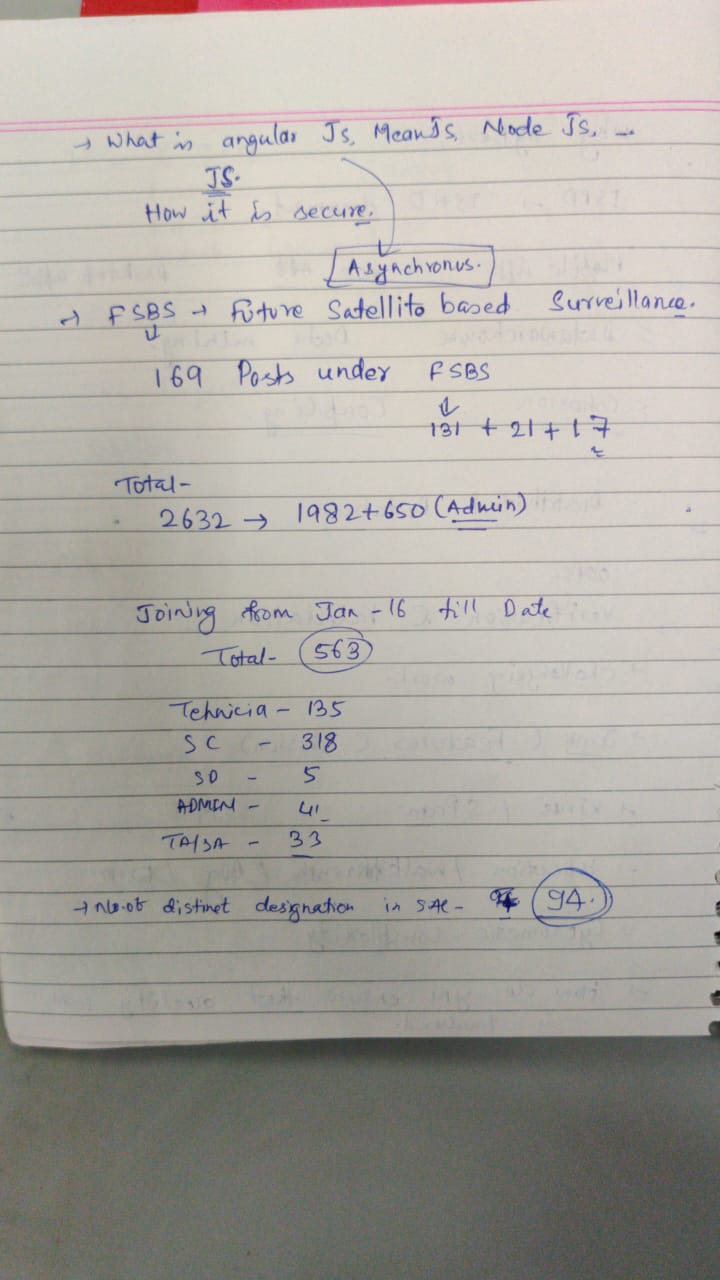 → What is angular Js, MeanJs, Node Js, ...
JS.
How it is secure.
Asynchronus.
→ FSBS → Future Satellite based Surveillance.
169 Posts under FSBS
131 + 21 + 17
Total-
2632 → 1982+650 (Admin)
Joining from Jan-16 till Date
Total- 563
Tehnicia - 135
SC - 318
SD - 5
ADMIN - 41
TA/SA - 33
→ No. of distinct designation in SAC - 94.